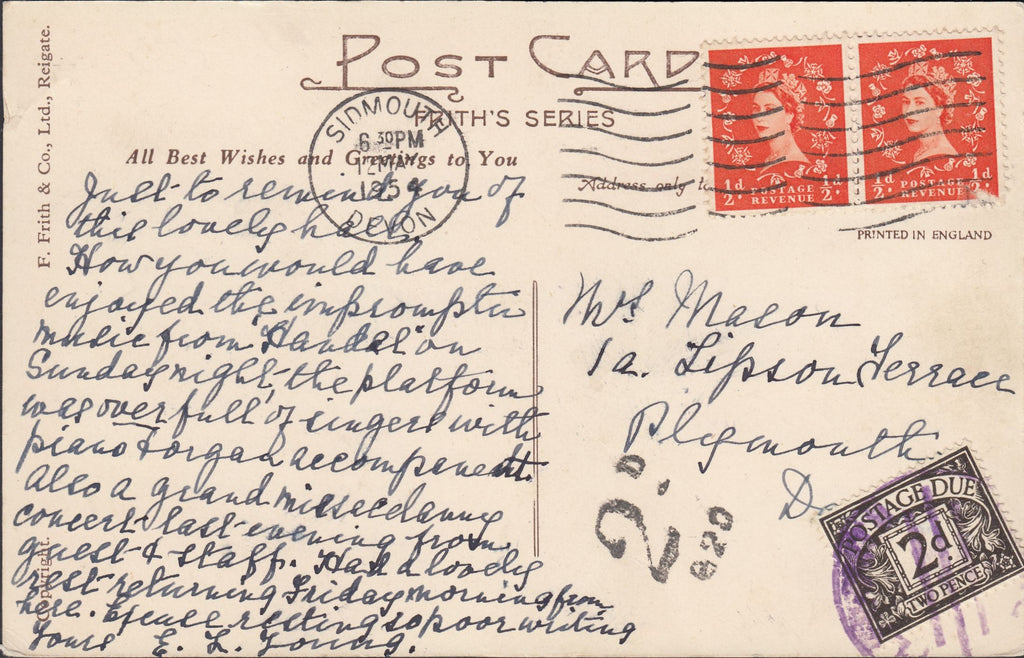 POST CARD
FRITH'S SERIES
F. Frith & Co., Ltd., Reigate.
Copyright.
All Best Wishes and Greetings to You
Address only to
PRINTED IN ENGLAND
SIDMOUTH
6 30PM
12 MAY
195
DEVON
½d. POSTAGE REVENUE ½d.
½d. POSTAGE REVENUE ½d.
Just to remind you of
this lovely hall
How you would have
enjoyed the impromptu
music from "Handel" on
Sunday night, the platform
was over full of singers with
piano & organ accompanent.
Also a grand missecelanny
concert last evening from
guest & staff. Had a lovely
rest returning Friday morning from
here. Excuse resting so poor writing
Yours E. L. Young.
Mrs Mason
1a. Lipson Terrace
Plymouth
2D.
620
POSTAGE DUE
2d
TWO PENCE